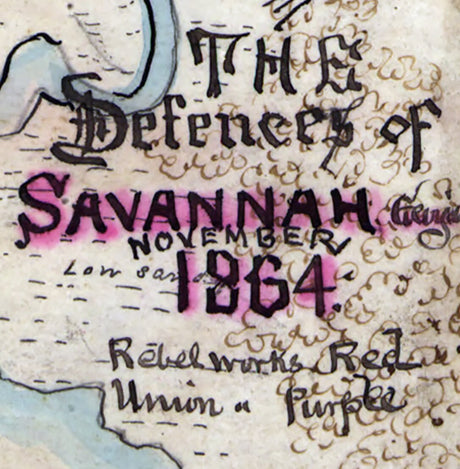 THE
Defences of
SAVANNAH Georgia
NOVEMBER
1864.
Low sandy
Rebel works Red
Union " Purple